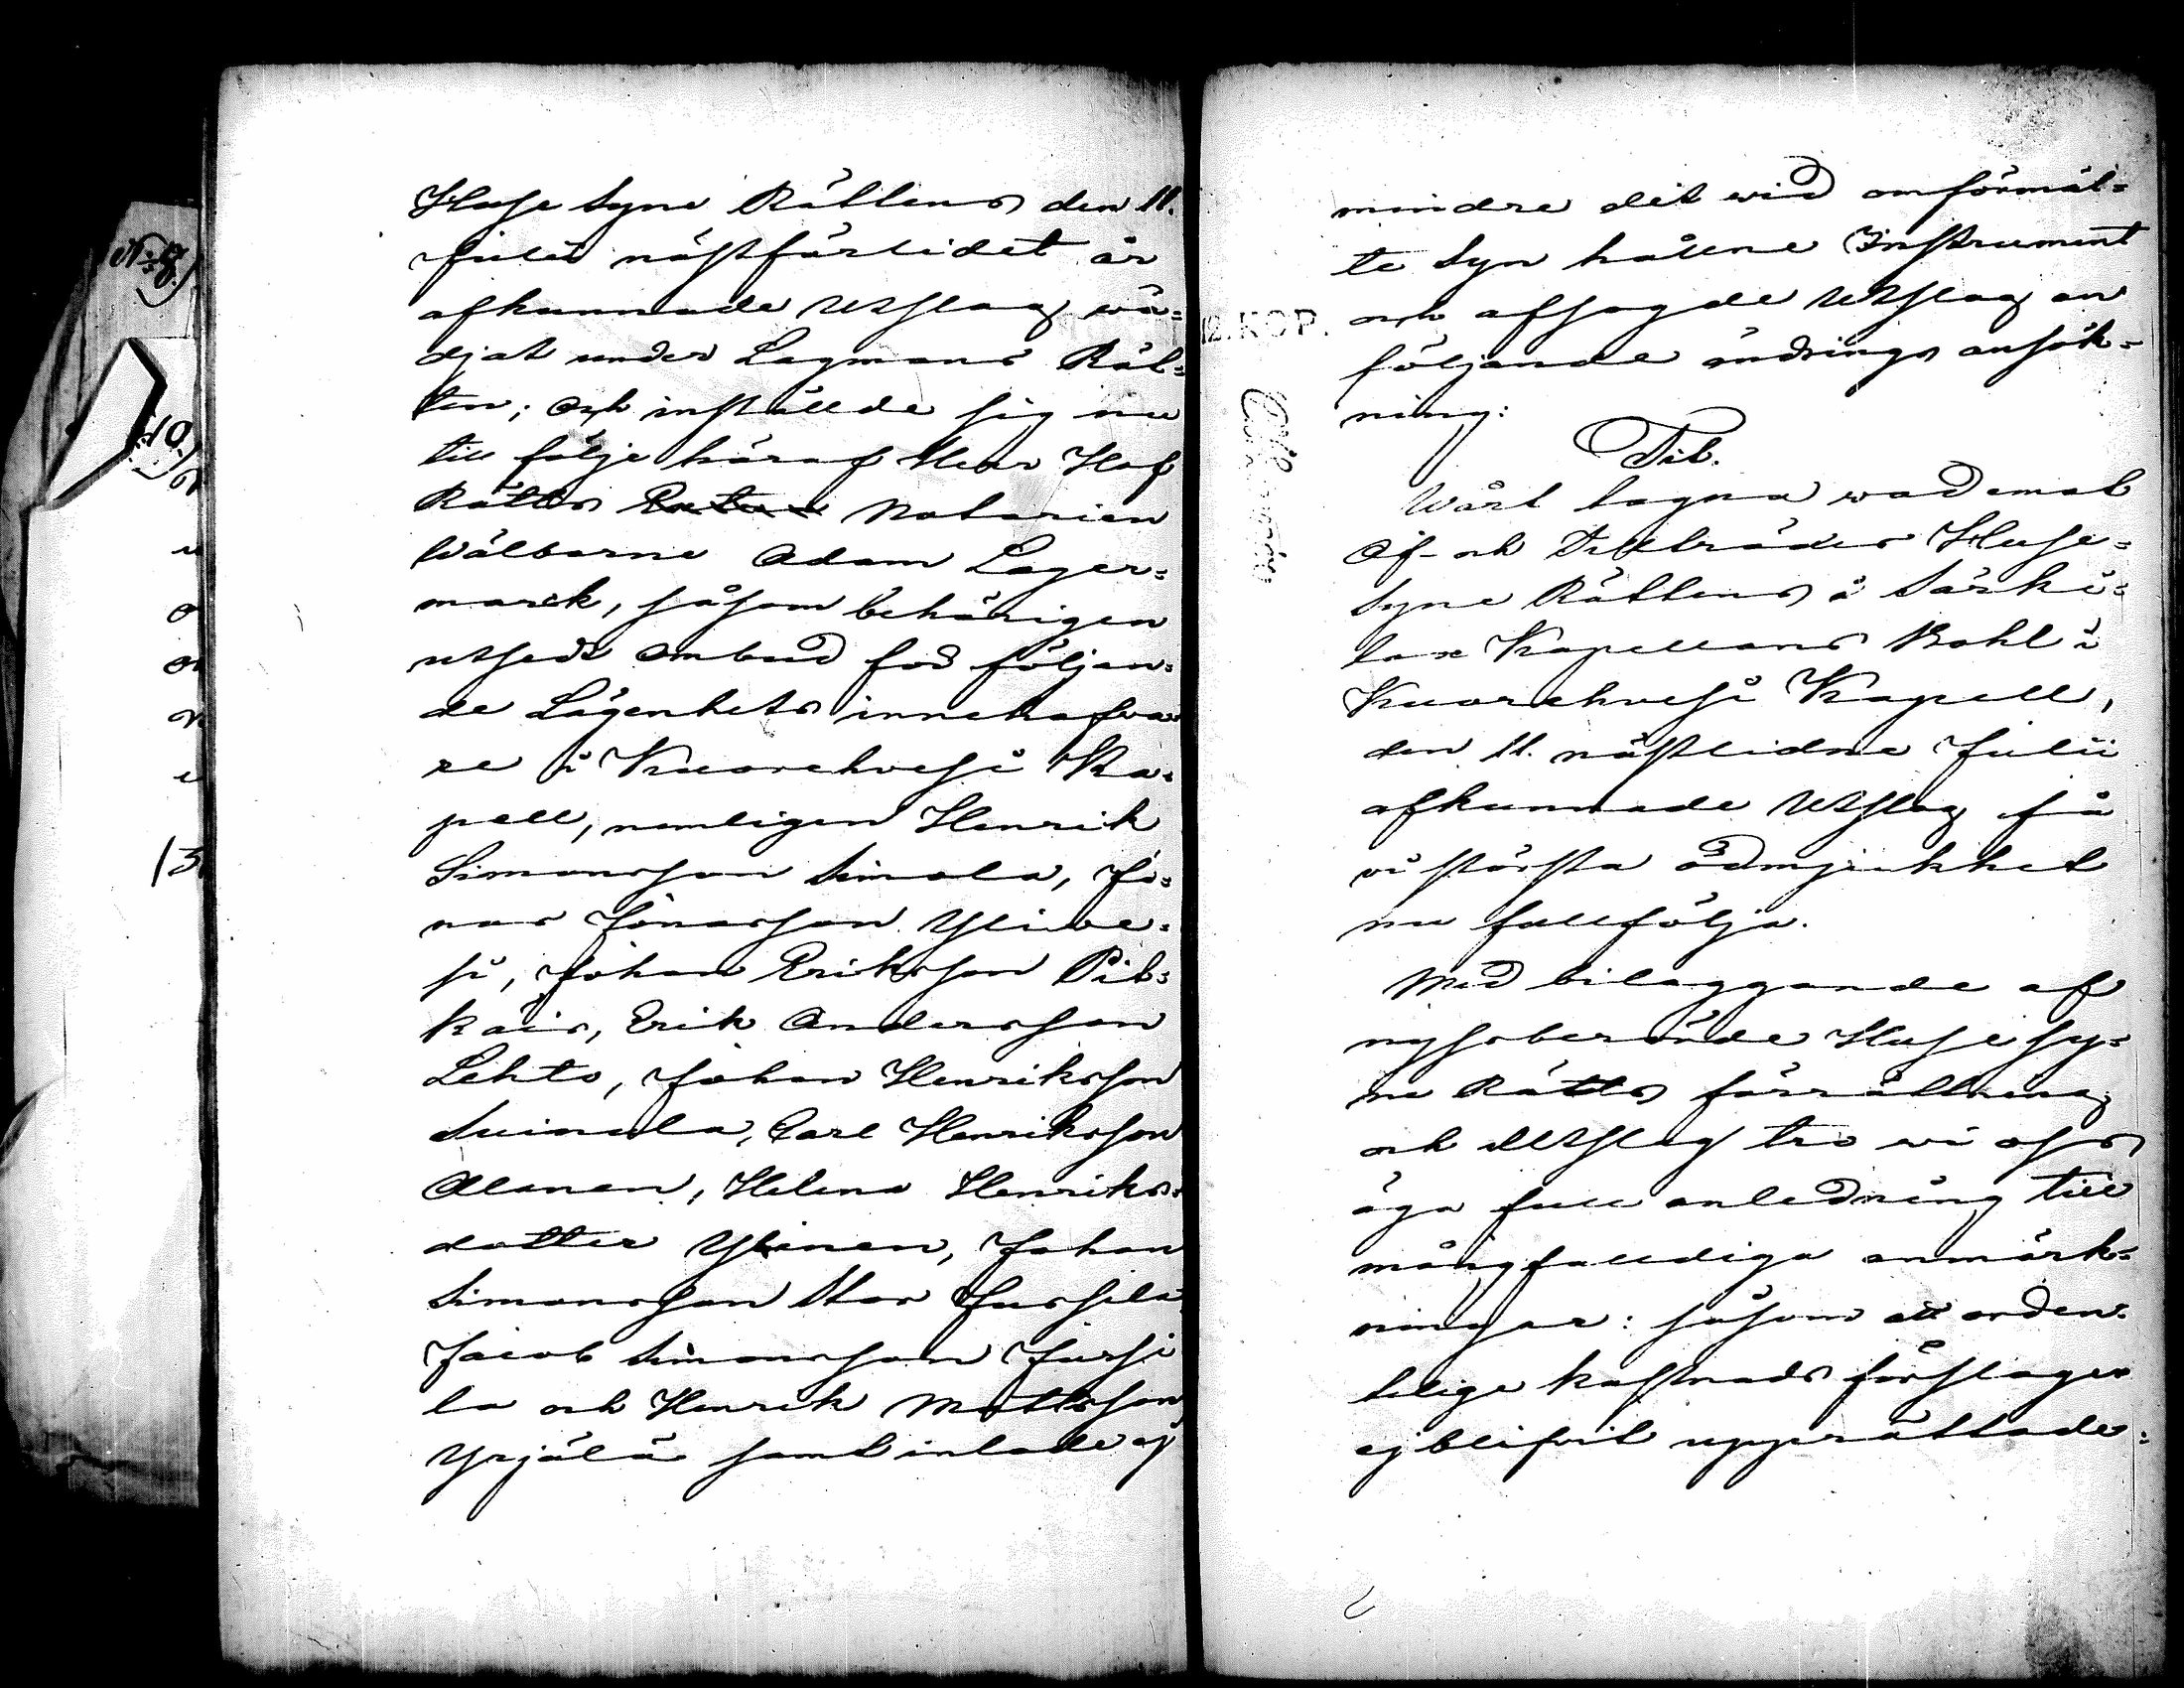 Huse Syne Rättens den 11.
Julii nästförlidet år
afkunnade Utslag, wä=
djat under Lagmans Rät=
ten; Och instälde sig nu
till följe häraf Herr Hof
Rätts Notarien
Wälborne Adam Lager=
marck, såsom behörigen
utsedt Ombud för följan=
de Lägenhets innehafva=
re i Kuorehvesi Ka=
pell, nemligen Henrik
Simonsson Simola, Jo=
nas Jönasson Yliwe=
si, Johan Eriksson Pit=
käis, Erik Andersson
Lehto, Johan Henriksson
Suinula, Carl Henriksson
Alanen, Helena Henriks=
dotter Ylinen, Johan
Simonsson Stor Jussila
Jacob Simonsson Jussi
la och Henrik Mattsson
Yrjälä samt inlade ej
mindre det wid omförmäl=
te Syn hållne Instrument
och afsagde Utslag än
följande ändrings ansök=
ning:
Tit.
Wårt tagna wad emot
Af- och Tillträdes Huse=
Syne Rättens å Särki=
lax Kapellans Bohl i
Kuorehvesi Kapell,
den 11. nästlidne Julii
afkunnade Utslag få
vi största ödmjukhet
nu fullfölja.
Med biläggande af
nyssberörde Husesy=
ne Rätts förrättning
och Utslag tro wi oss
äga full anledning till
mångfalldiga anmärk=
ningar: såsom att orden=
telige kostnads förslager
ej blifvit upprättade:
12. KOP.